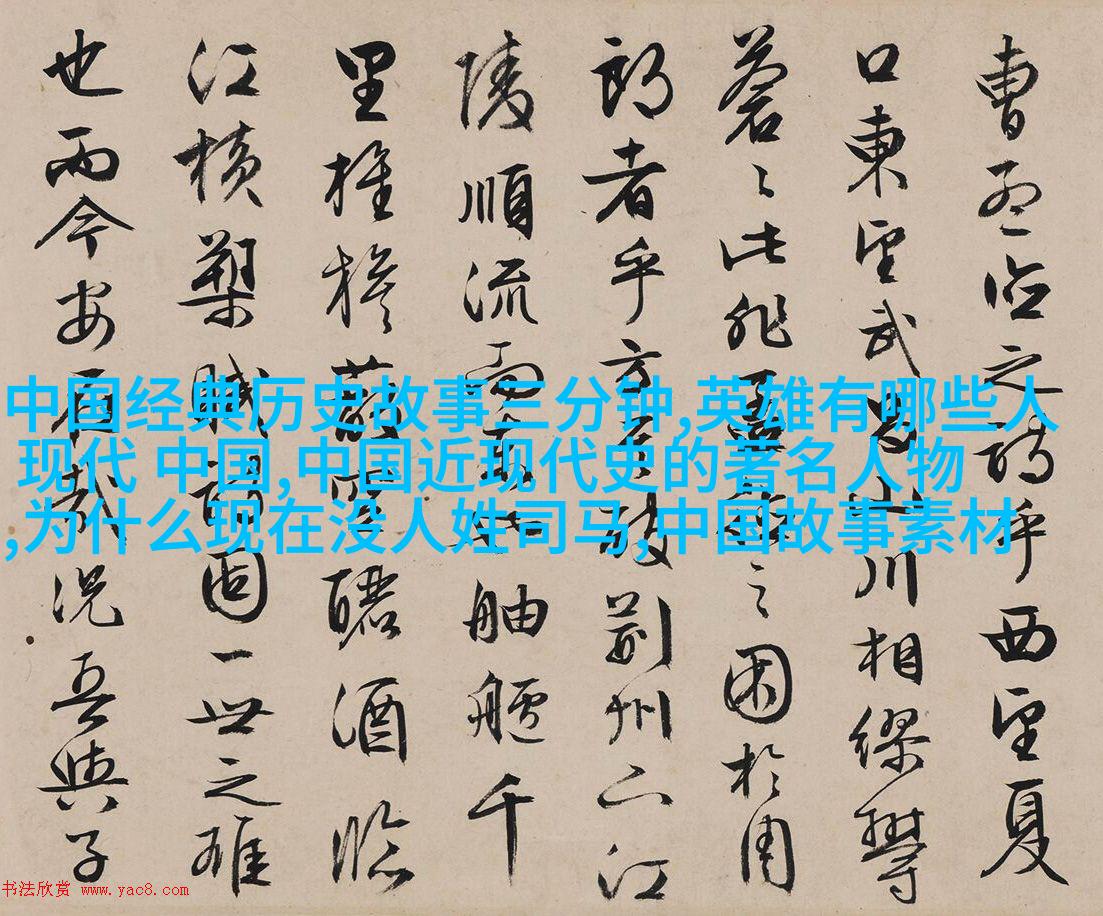 曹孟德之詩乎西望夏
口東望武昌山川相繆欝
蒼〻此非孟德之困於周
郎者乎方其破荆州下江
陵順流而東也舳艫千
里旌旗蔽空釃酒臨
江横槊賦詩固一世之雄
也而今安在哉況吾與子
中国经典历史故事三分钟,英雄有哪些人
现代 中国,中国近现代史的著名人物
,为什么现在没人姓司马,中国故事素材
书法欣赏 www.yac8.com